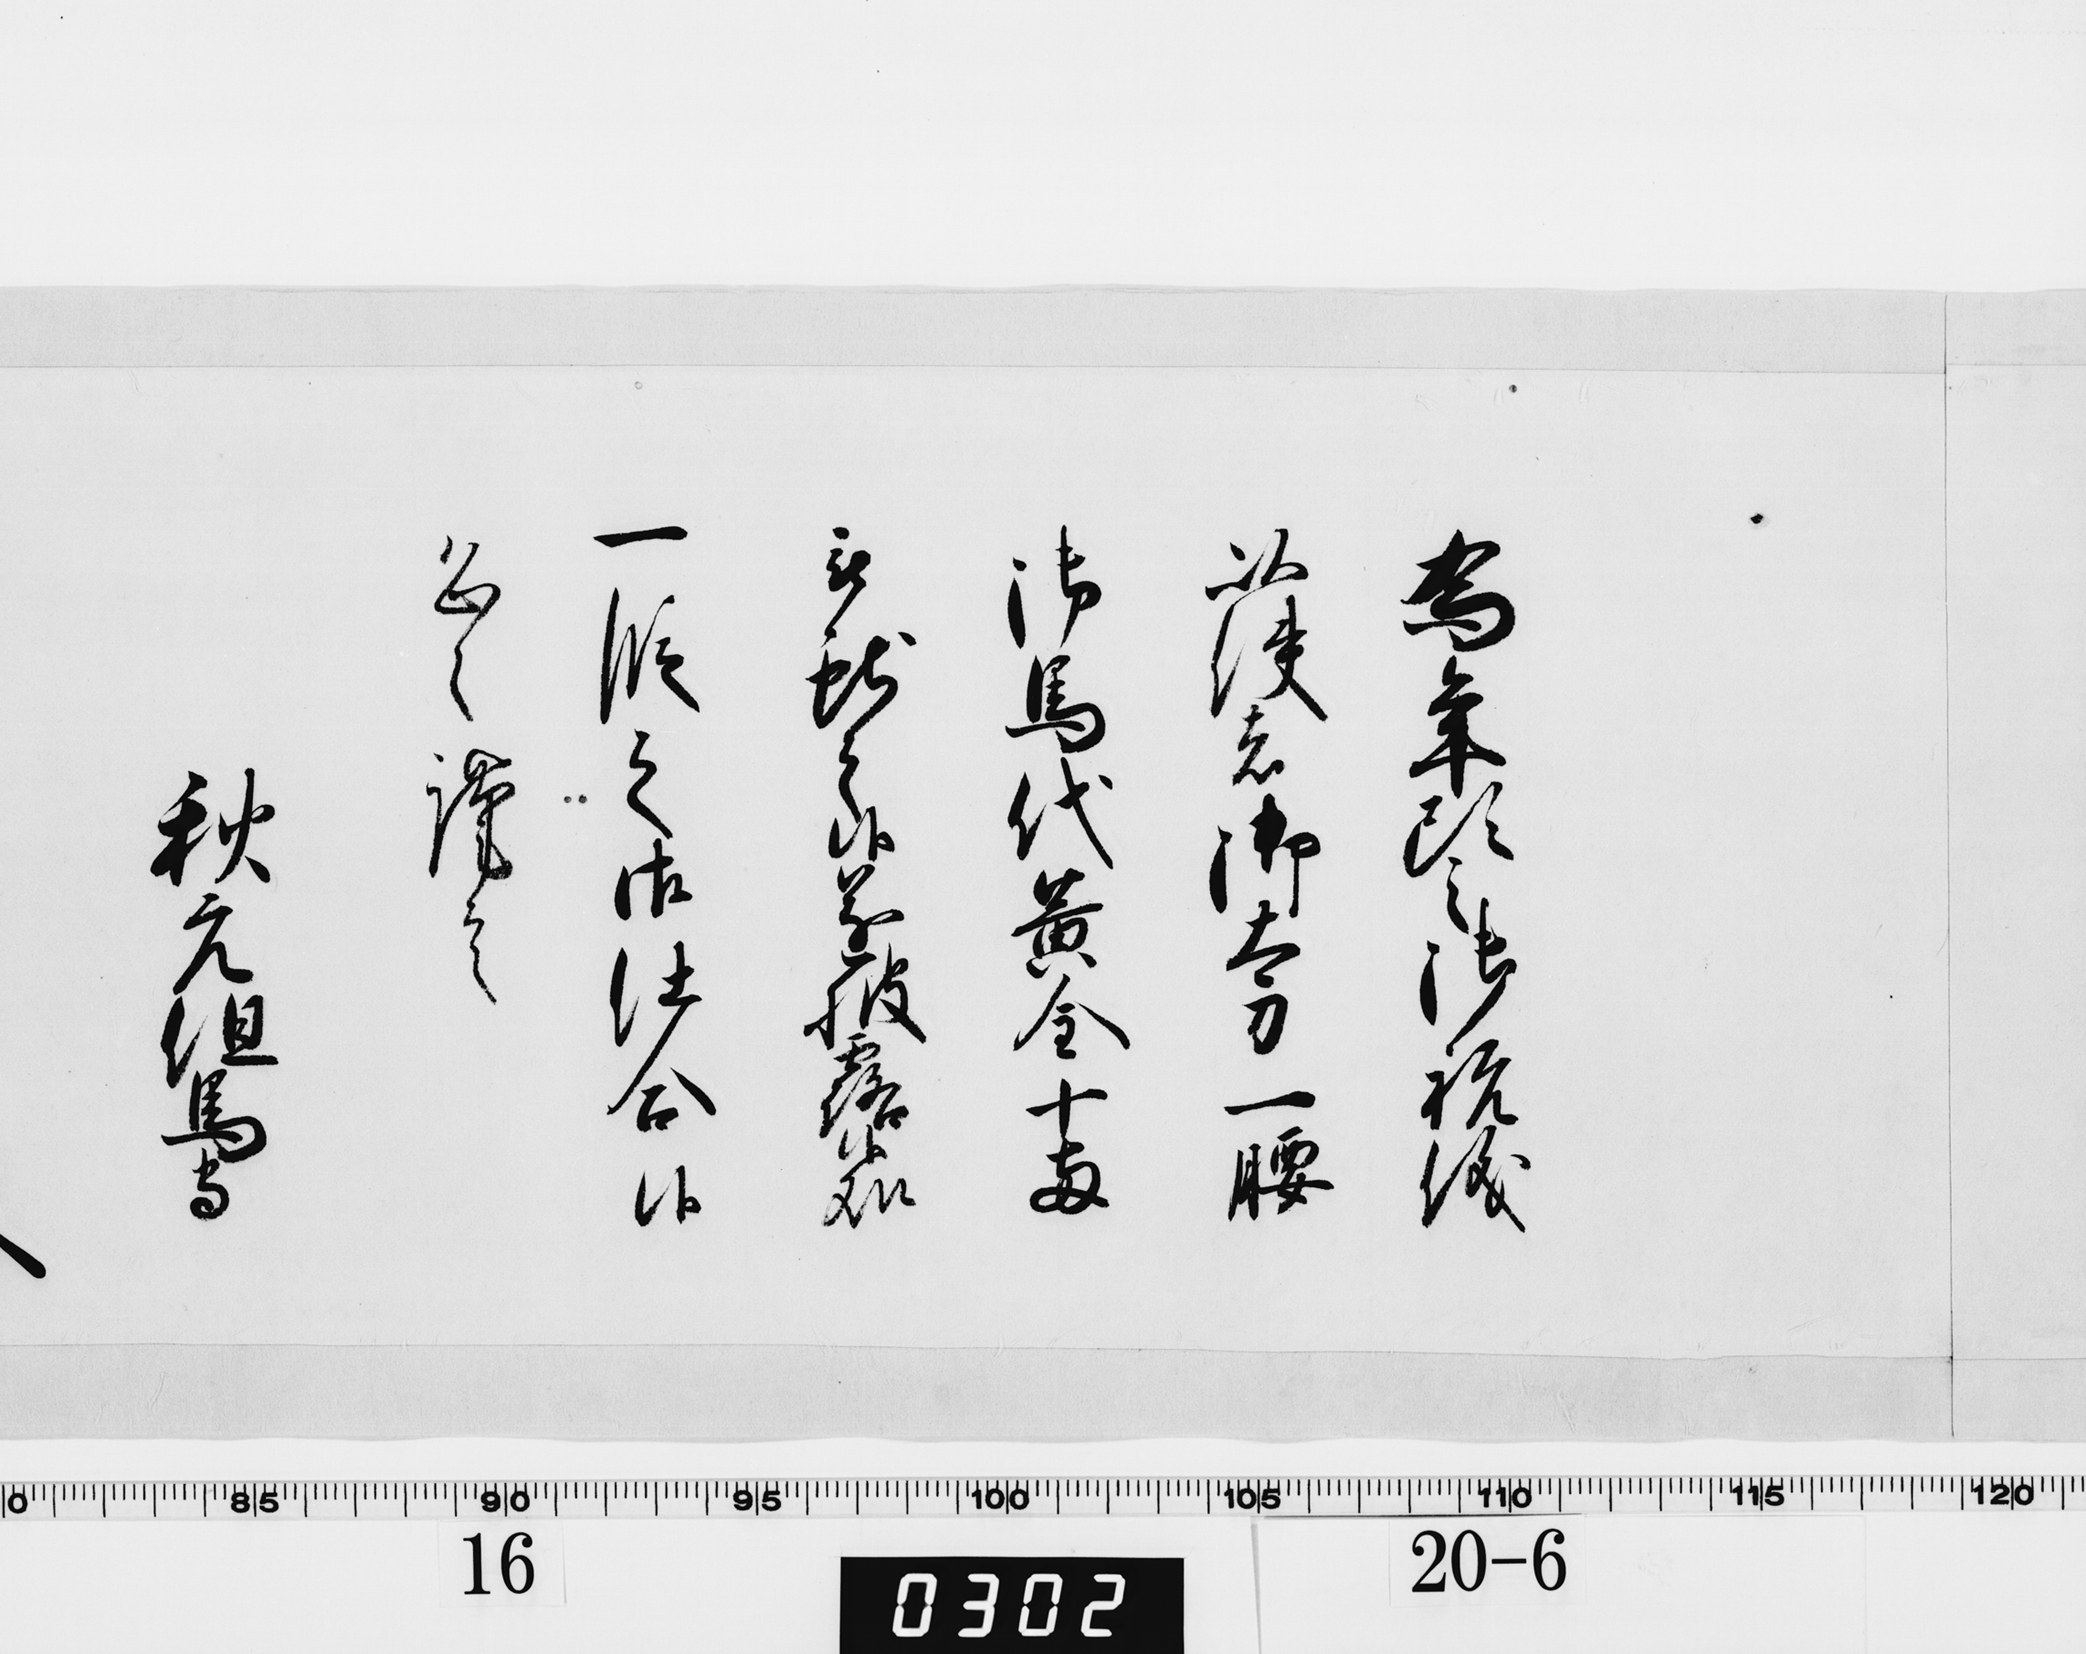 為年頭之御祝儀
以使者御太刀一腰
御馬代黄金十両
被献之候遂披露候処
一段之御仕合候
恐々謹言
秋元但馬守
0 85 90 95 100 105 110 115 120
16
20-6
0302